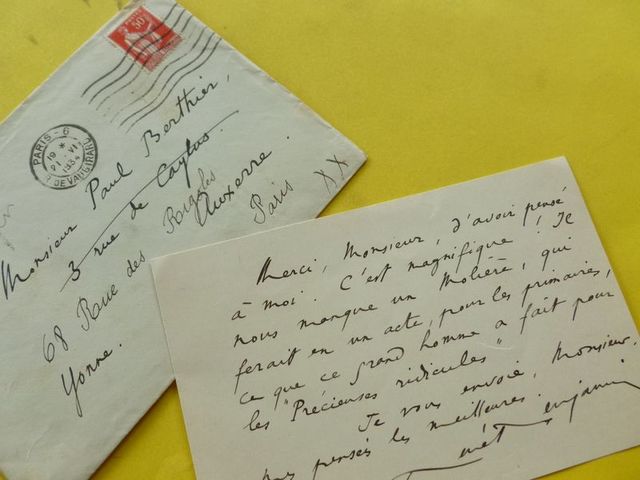 50
PARIS - 6
19 *
21 VI
1934
R. DE VAUGIRARD
Monsieur Paul Berthier,
3 rue de Caylus.
68 Rue des Rigoles
Auxerre.
Yonne.
Paris XX
Merci, Monsieur, d'avoir pensé
à moi. C'est magnifique ! Il
nous manque un Molière, qui
ferait en un acte, pour les primaires,
ce que ce grand homme a fait pour
les "Précieuses ridicules"
Je vous envoie, Monsieur,
mes pensées les meilleures.